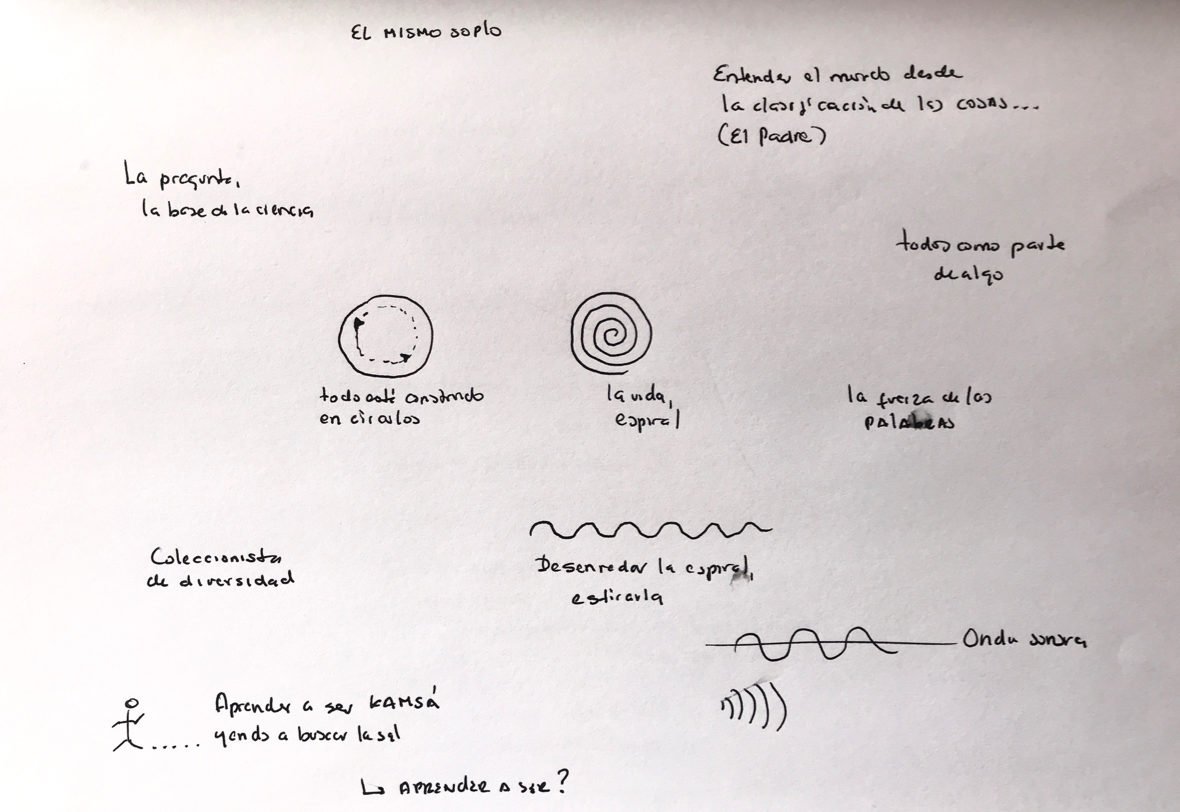 EL MISMO SOPLO
Entender el mundo desde
la clasificación de las cosas...
(El Padre)
La pregunta,
la base de la ciencia
todos como parte
de algo
todo está construido
en círculos
la vida,
espiral
la fuerza de las
PALABRAS
Coleccionista
de diversidad
Desenredar la espiral,
estirarla
Onda sonora
Aprender a ser KAMSÁ
yendo a buscar la sal
↳ APRENDER A SER?